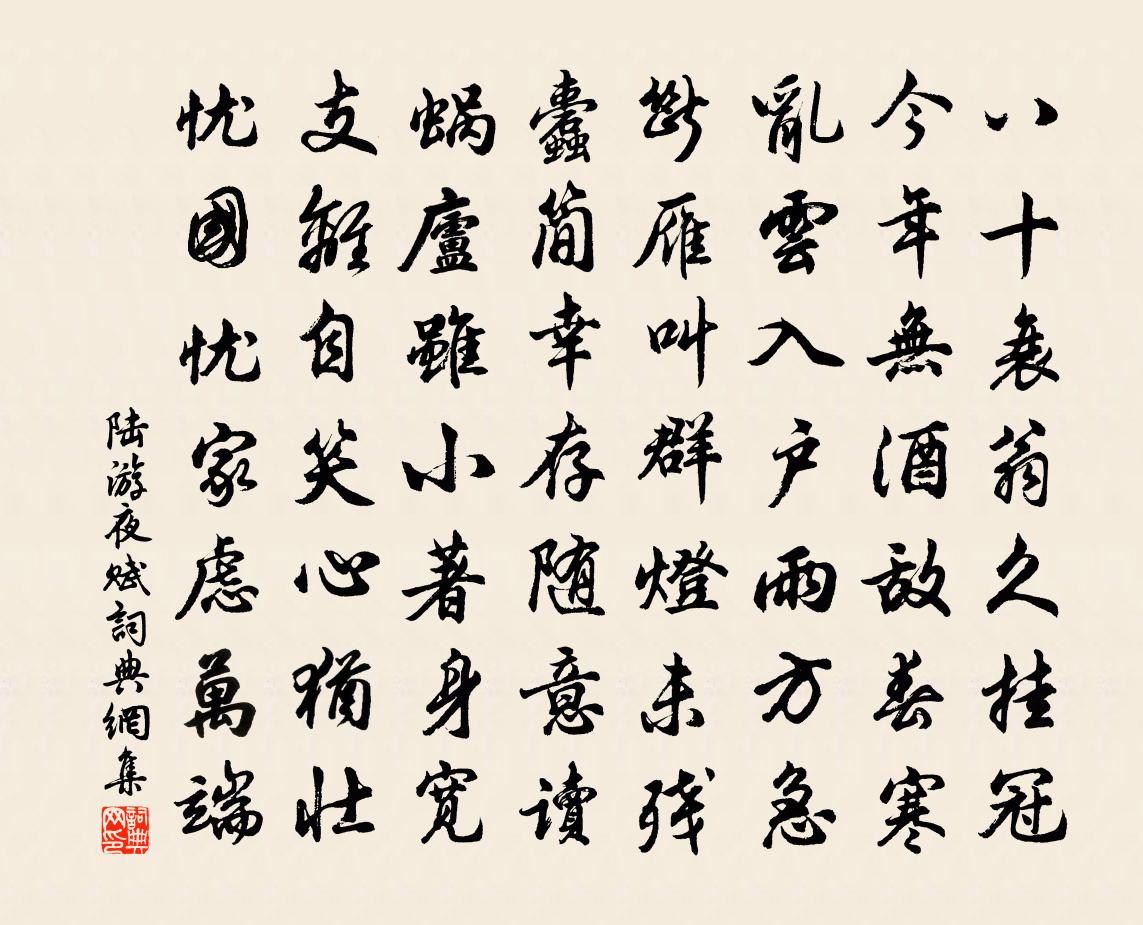 八十衰翁久挂冠
今年無酒敌春寒
亂雲入户雨方急
斷雁叫群燈未残
蠹简幸存随意讀
蝸廬雖小著身寬
支離自笑心猶壮
忧國忧家慮萬端
陆游夜赋詞典網集
詞典网印